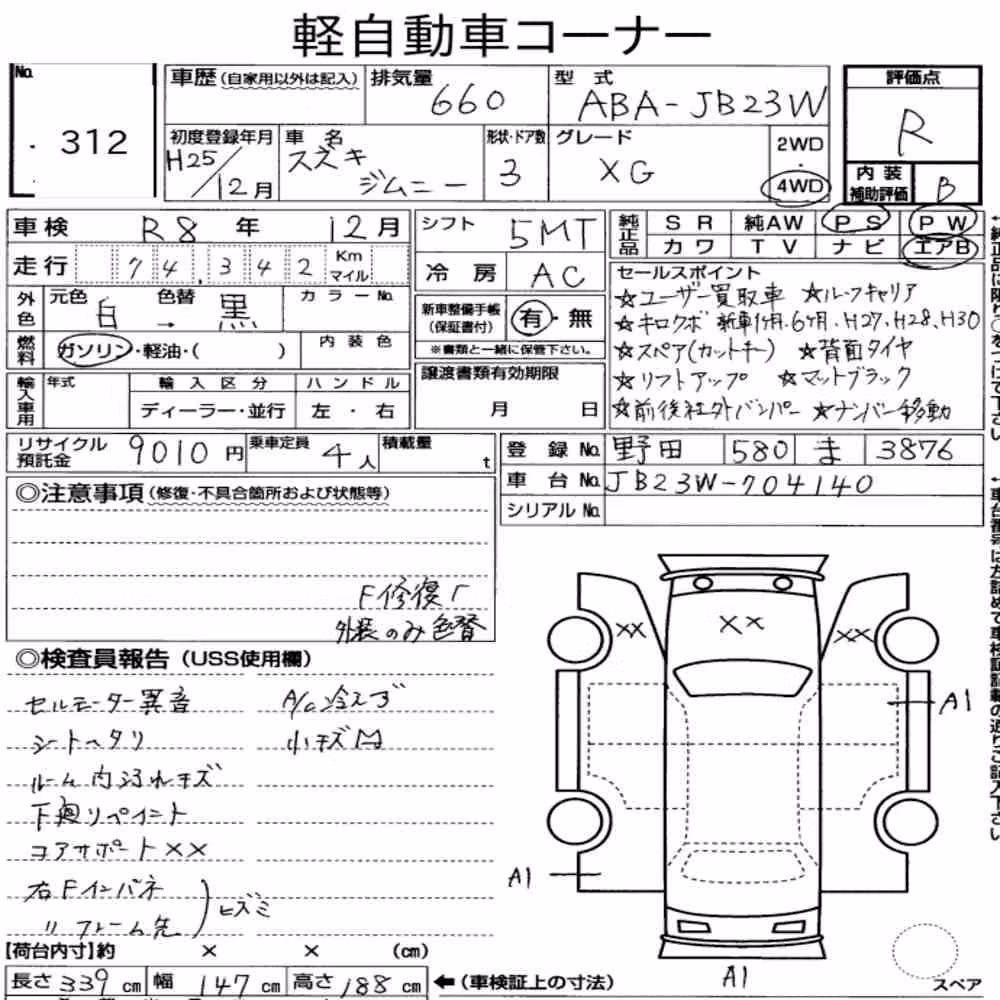 軽自動車コーナー
No. 312
車歴(自家用以外は記入) 排気量 660 型式 ABA-JB23W 評価点 R
初度登録年月 H25/12月 車名 スズキ ジムニー 形状・ドア数 3 グレード XG 2WD・4WD 内装補助評価 B
車検 R8年 12月 シフト 5MT 純正品 SR 純AW PS PW
カワ TV ナビ エアB
走行 74,342 Km マイル 冷房 AC
セールスポイント
☆ユーザー買取車 ☆ルーフキャリア
☆キロクボ 新車1ヶ月.6ヶ月.H27.H28.H30
☆スペア(カットキー) ☆背面タイヤ
☆リフトアップ ☆マットブラック
☆前後社外バンパー ☆ナンバー移動
外色 元色 白 → 色替 黒 カラーNo.
新車整備手帳(保証書付) 有・無
※書類と一緒に保管下さい。
燃料 ガソリン・軽油・( ) 内装色
輸入車用 年式 輸入区分 ハンドル
ディーラー・並行 左・右
譲渡書類有効期限
月 日
リサイクル預託金 9010円 乗車定員 4人 積載量 t
登録No. 野田 580 ま 3876
車台No. JB23W-704140
シリアルNo.
◎注意事項(修復・不具合箇所および状態等)
F修復「
外装のみ色替
◎検査員報告(USS使用欄)
セルモーター異音 A/C冷えず
シートヘタリ 小キズ凹
ルーム内汚れキズ
下廻リペイント
コアサポート××
右Fインパネ
〃 フレーム先 ヒズミ
×× ×× ××
A1
A1
A1
スペア
【荷台内寸】約 × × (cm)
長さ339cm 幅147cm 高さ188cm ←(車検証上の寸法)